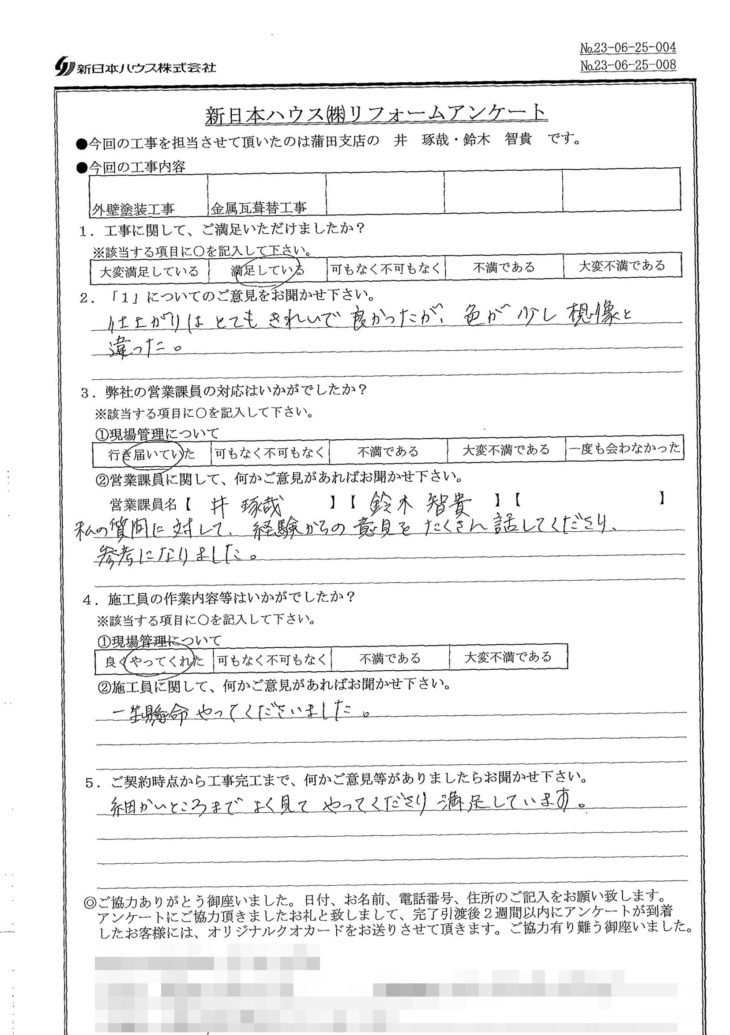 No.23-06-25-004
No.23-06-25-008
新日本ハウス株式会社
新日本ハウス㈱リフォームアンケート
●今回の工事を担当させて頂いたのは蒲田支店の 井 琢哉・鈴木 智貴 です。
●今回の工事内容
外壁塗装工事 金属瓦葺替工事
1．工事に関して、ご満足いただけましたか？
※該当する項目に○を記入して下さい。
大変満足している 満足している 可もなく不可もなく 不満である 大変不満である
2．「1」についてのご意見をお聞かせ下さい。
仕上がりはとてもきれいで良かったが、色が少し想像と
違った。
3．弊社の営業課員の対応はいかがでしたか？
※該当する項目に○を記入して下さい。
①現場管理について
行き届いていた 可もなく不可もなく 不満である 大変不満である 一度も会わなかった
②営業課員に関して、何かご意見があればお聞かせ下さい。
営業課員名【 井 琢哉 】【 鈴木 智貴 】【 】
私の質問に対して、経験からの意見をたくさん話してくださり、
参考になりました。
4．施工員の作業内容等はいかがでしたか？
※該当する項目に○を記入して下さい。
①現場管理について
良くやってくれた 可もなく不可もなく 不満である 大変不満である
②施工員に関して、何かご意見があればお聞かせ下さい。
一生懸命やってくださいました。
5．ご契約時点から工事完工まで、何かご意見等がありましたらお聞かせ下さい。
細かいところまでよく見てやってくださり満足しています。
◎ご協力ありがとう御座いました。日付、お名前、電話番号、住所のご記入をお願い致します。
アンケートにご協力頂きましたお礼と致しまして、完了引渡後2週間以内にアンケートが到着
したお客様には、オリジナルクオカードをお送りさせて頂きます。ご協力有り難う御座いました。